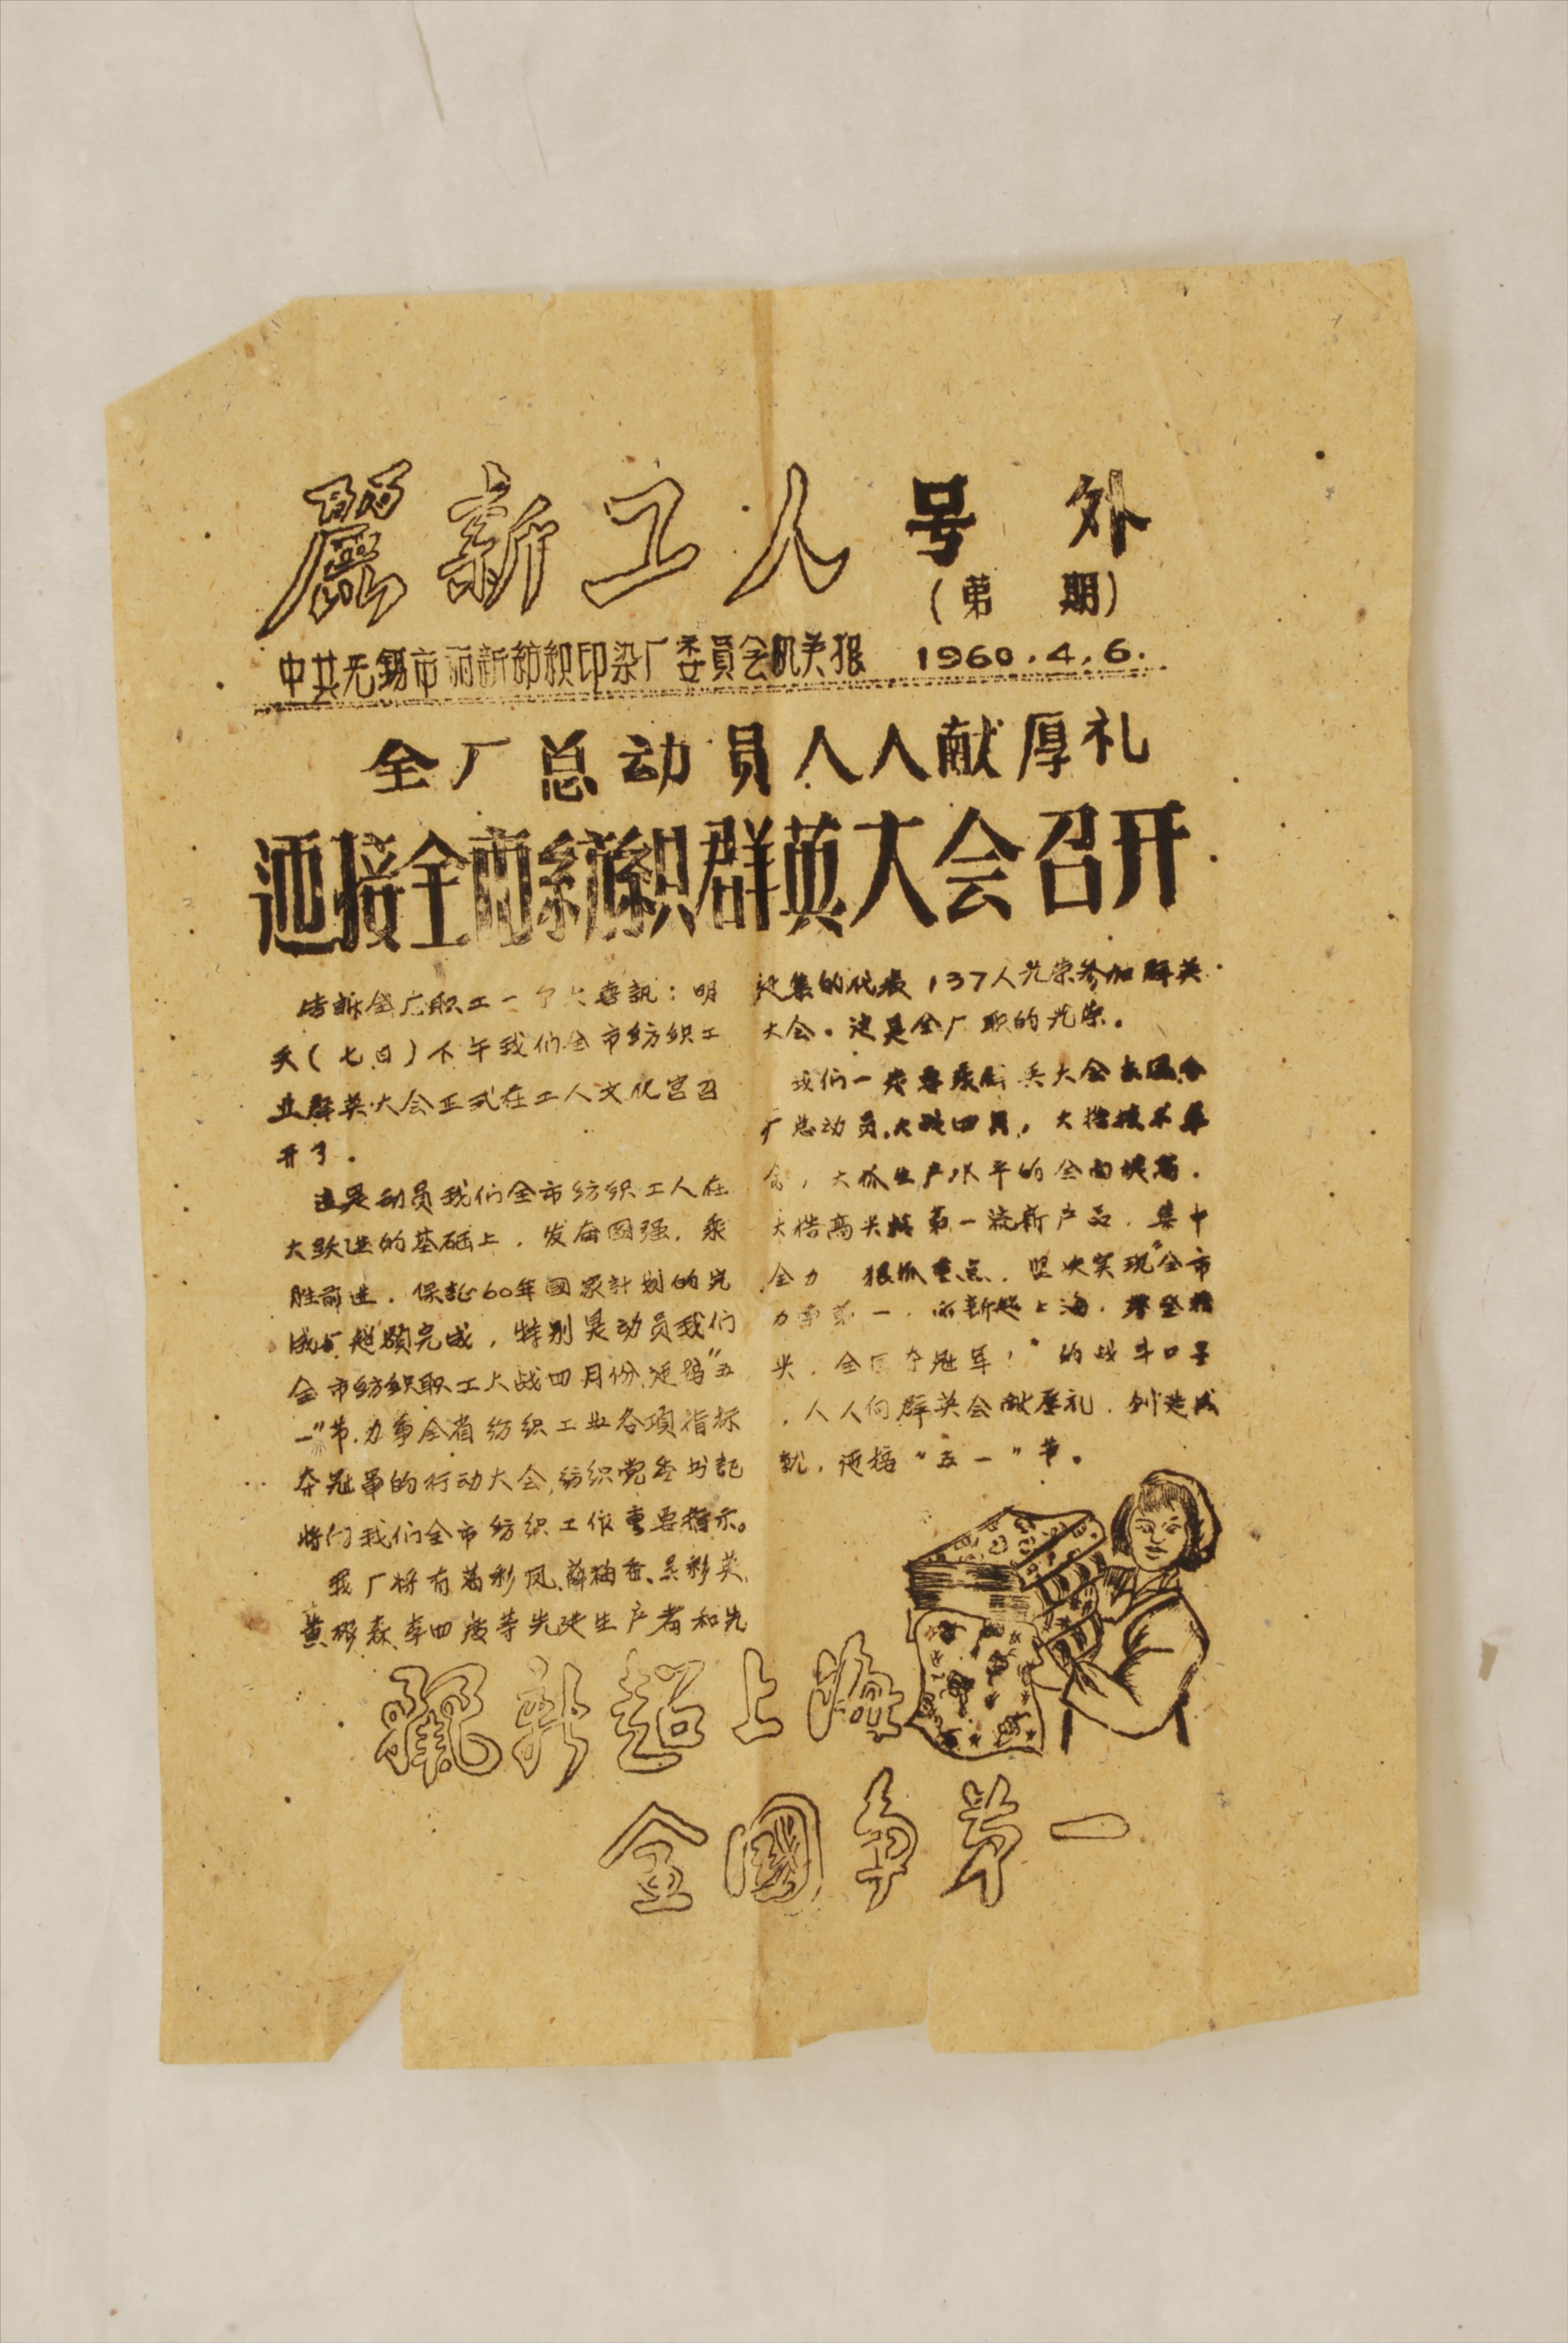 麗新工人 号外
(第 期)
中共无锡市丽新纺织印染厂委員会机关报 1960.4.6.
全厂总动員人人献厚礼
迊接全市纺织群英大会召开
告訴全厂职工一个大喜訊：明
天(七日)下午我们全市纺织工
业群英大会正式在工人文化宫召
开了。
这是动员我们全市纺织工人在
大跃进的基础上，发奋图强，乘
胜前进，保証60年國家計划的完
成与超額完成，特别是动员我们
全市纺织职工大战四月份、迊接"五
一"节，力争全省纺织工业各項指标
夺冠軍的行动大会，纺织党委书記
将们我们全市纺织工作重要指示。
我厂将有 彩凤、薛梅香、吴彩英、
黄 森、李四度等先进生产者和先
进集的代表137人光荣参加群英
大会。这是全厂职的光荣。
我们一 要 兵大会 全
厂总动员，大战四月，大搞技术革
命，大抓生产水平的全面提高。
大搞高尖精第一流新产品，集中
全力 狠抓重点，坚决实现"全市
力争第一，丽新超上海， 登
尖，全国夺冠军！"的战斗口号
，人人向群英会献厚礼，创造成
就，迊接"五一"节。
麗新超上海
全國争第一